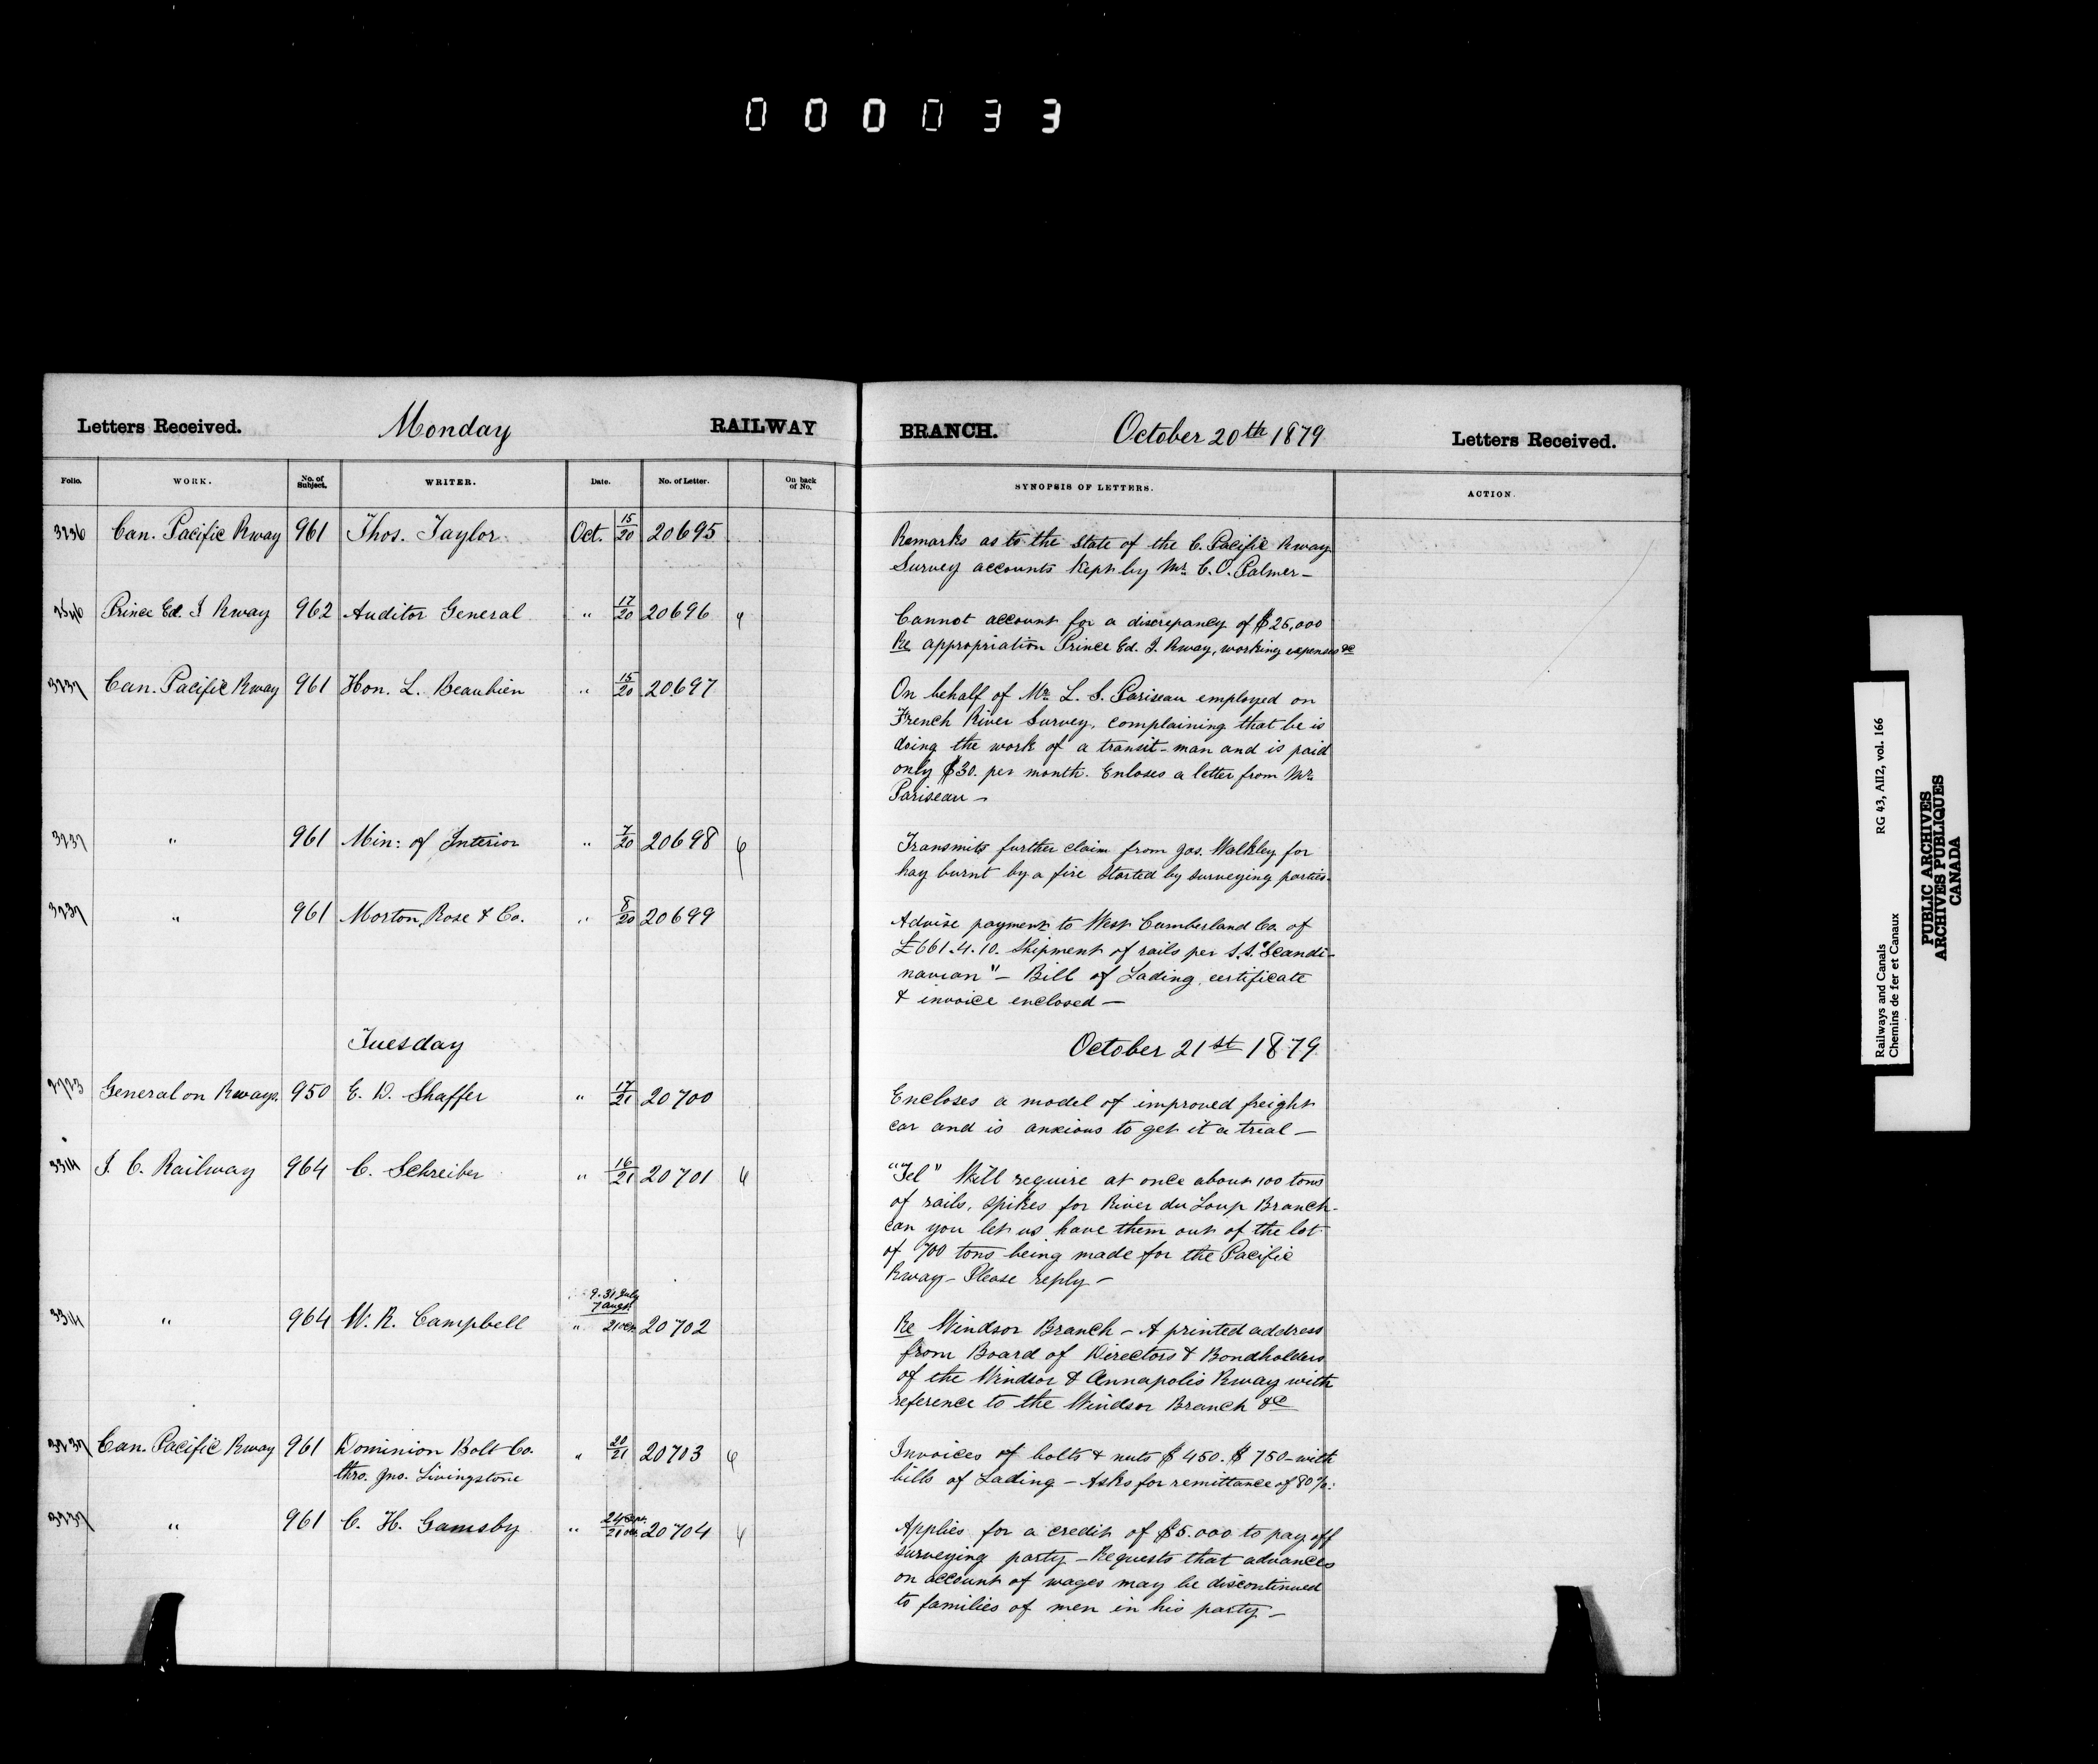 000033
Letters Received. Monday RAILWAY BRANCH. October 20th 1879 Letters Received.
Folio. WORK. No. of Subject. WRITER. Date. No. of Letter. On back of No. SYNOPSIS OF LETTERS. ACTION.
3236 Can. Pacific Rway 961 Thos. Taylor Oct. 15/20 20695 Remarks as to the state of the C. Pacific Rway
Survey accounts kept by Mr. C. O. Palmer –
Prince Ed. I Rway 962 Auditor General " 17/20 20696 Cannot account for a discrepancy of $25,000
Re appropriation Prince Ed. I. Rway, working expenses &c
3237 Can. Pacific Rway 961 Hon. L. Beaubien " 15/20 20697 On behalf of Mr. L. S. Pariseau employed on
French River Survey, complaining that he is
doing the work of a transit-man and is paid
only $30. per month. Enloses a letter from Mr.
Pariseau –
3237 " 961 Min: of Interior " 7/20 20698 Transmits further claim from Jas. Walkley for
hay burnt by a fire started by surveying parties.
3237 " 961 Morton, Rose & Co. " 8/20 20699 Advise payment to West Cumberland Co. of
£661.4.10. Shipment of rails per S.S. "Scandi-
navian" – Bill of Lading, certificate
& invoice enclosed –
Tuesday October 21st 1879
General on Rways. 950 E. D. Shaffer " 17/21 20700 Encloses a model of improved freight
car and is anxious to get it a trial –
3314 I. C. Railway 964 C. Schreiber " 16/21 20701 "Tel" Will require at once about 100 tons
of rails, spikes for River du Loup Branch –
can you let us have them out of the lot
of 700 tons being made for the Pacific
Rway – Please reply –
3314 " 964 W. R. Campbell " 9.31 July 7 Augst. / 21 Oct. 20702 Re Windsor Branch – A printed address
from Board of Directors & Bondholders
of the Windsor & Annapolis Rway with
reference to the Windsor Branch &c
3237 Can. Pacific Rway 961 Dominion Bolt Co. " 20/21 20703 Invoices of bolts & nuts $450. $750 – with
thro. Jno. Livingstone bills of Lading – Asks for remittance of 80%.
3237 " 961 C. H. Gamsby " 24 Sep./21 Oct. 20704 Applies for a credit of $5.000 to pay off
surveying party – Requests that advances
on account of wages may be discontinued
to families of men in his party –
Railways and Canals RG 43, AII2, vol. 166
Chemins de fer et Canaux
PUBLIC ARCHIVES
ARCHIVES PUBLIQUES
CANADA